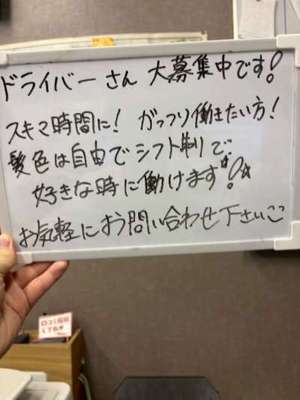 ドライバーさん 大募集中です!
スキマ時間に! がっつり働きたい方!
髪色は自由でシフト制で
好きな時に働けます!☆
お気軽にお問い合わせ下さい